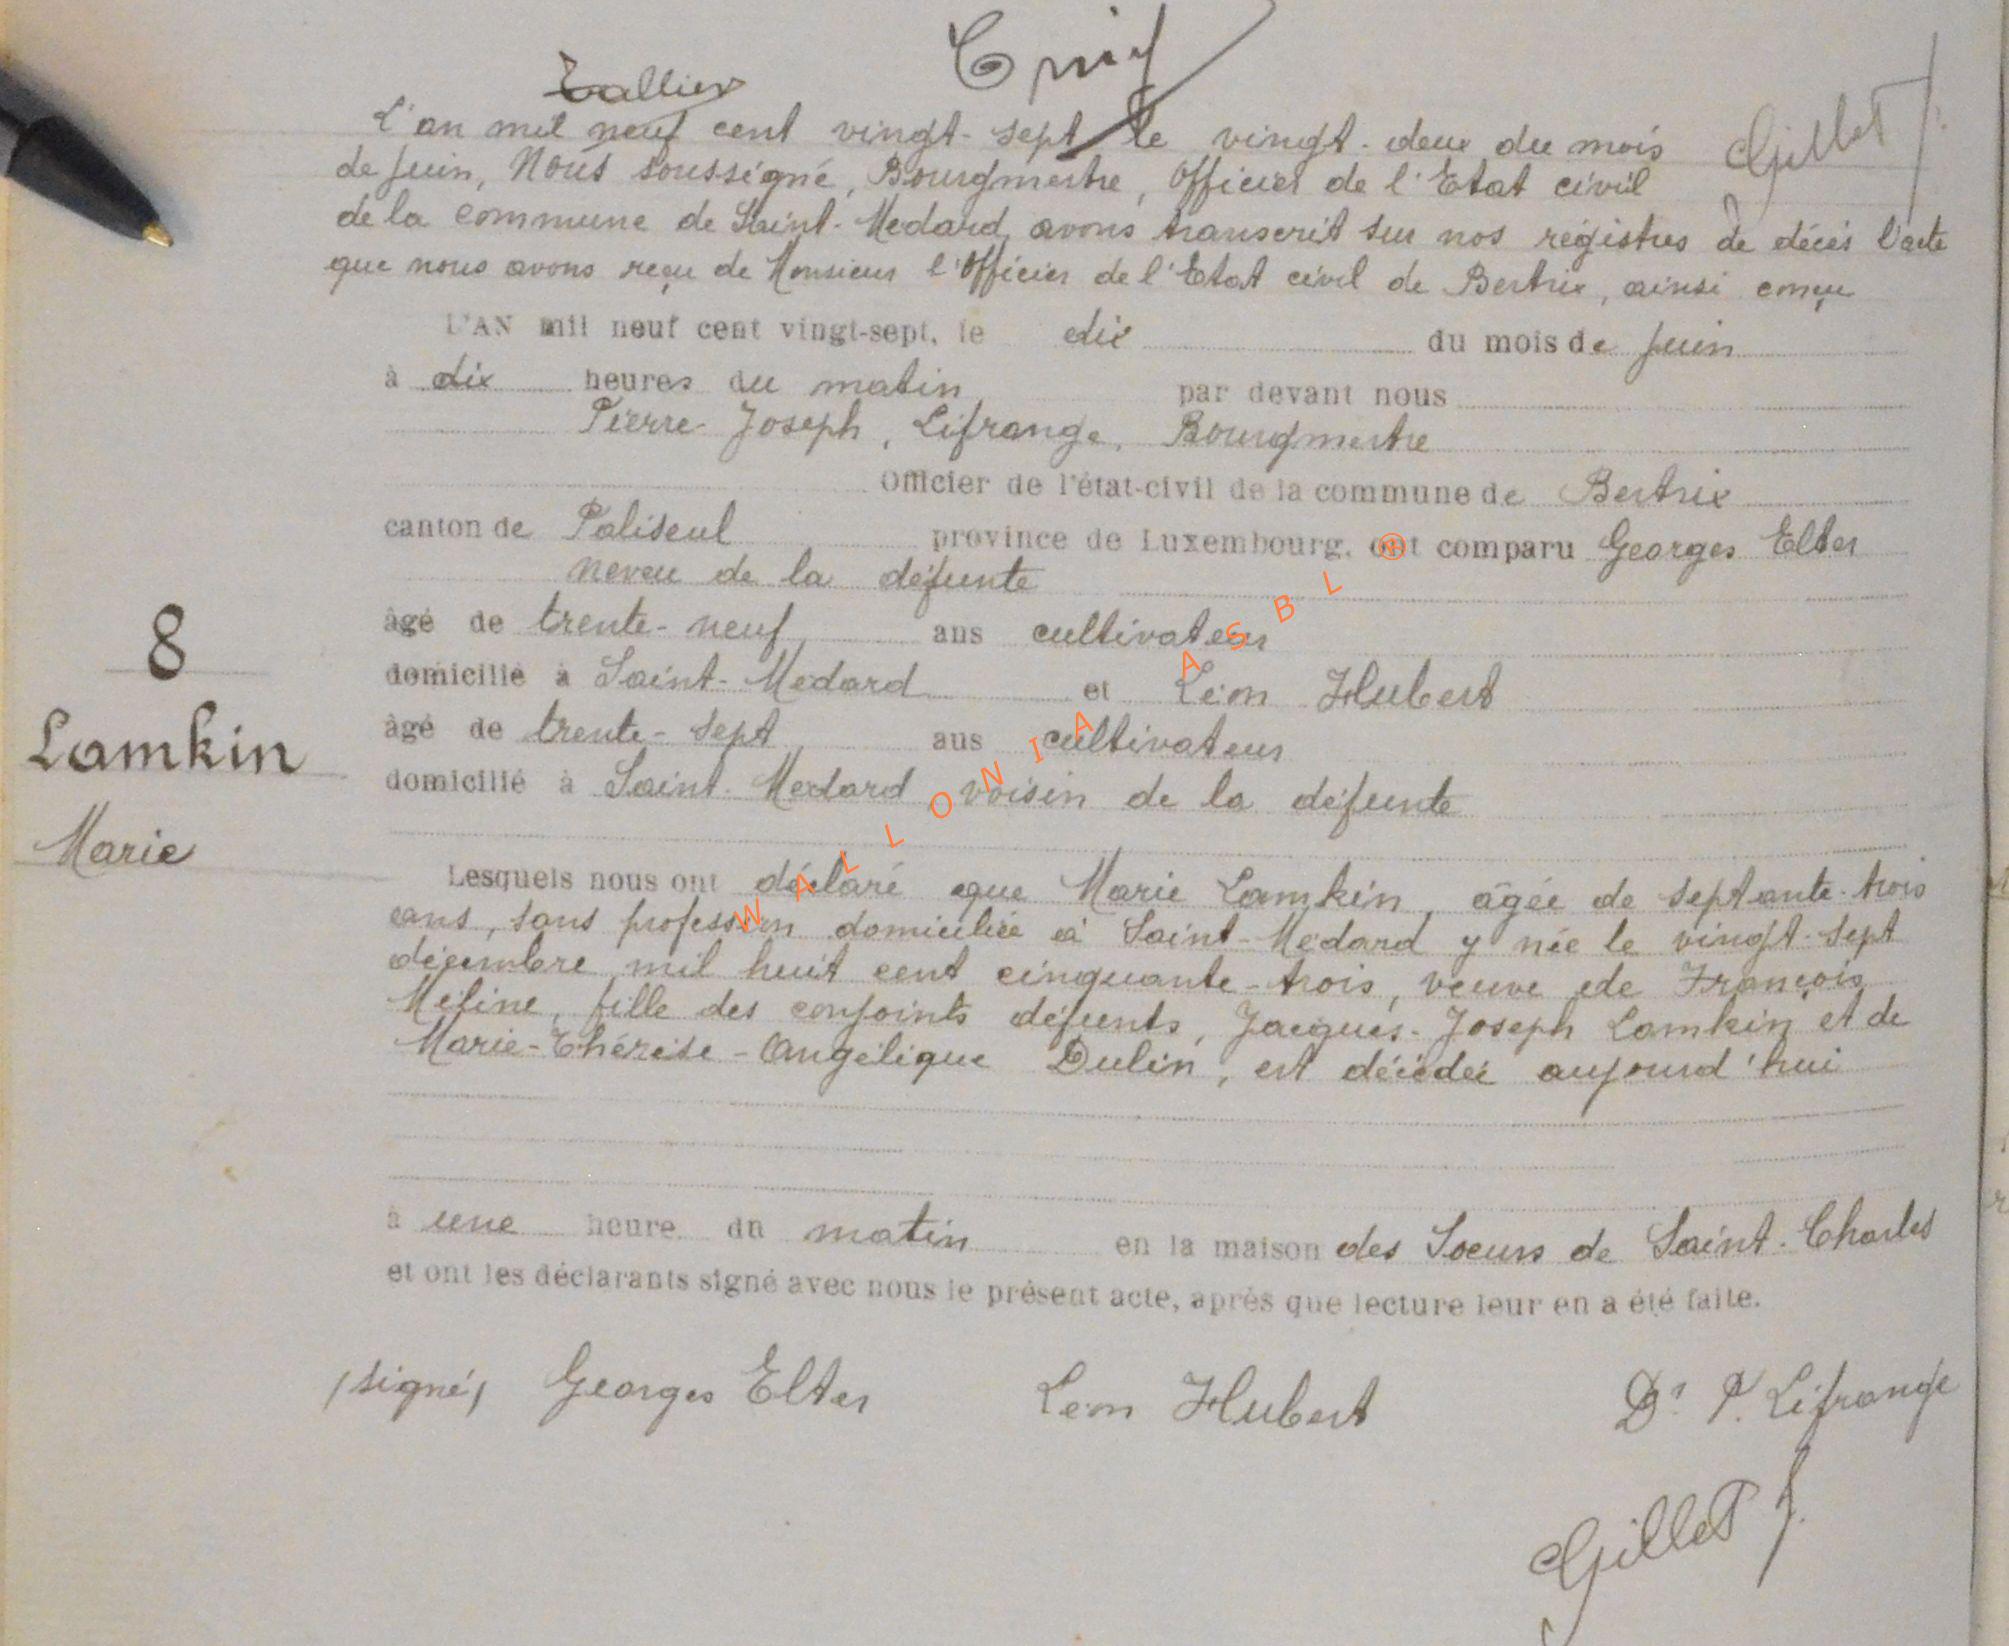 L'an mil neuf cent vingt-sept le vingt-deux du mois
Gillet J.
de Juin, Nous soussigné, Bourgmestre, Officier de l'Etat civil
de la commune de Saint-Medard, avons transcrit sur nos régistres de décès l'acte
que nous avons reçu de Monsieur l'Officier de l'Etat civil de Bertrix, ainsi conçu
L'AN mil neuf cent vingt-sept, le dix du mois de Juin
à dix heures du matin par devant nous
Pierre-Joseph, Lifrange, Bourgmestre
Officier de l'état-civil de la commune de Bertrix
canton de Paliseul province de Luxembourg, ont comparu Georges Elter
neveu de la défunte
âgé de trente-neuf ans cultivateur
domicilié à Saint-Medard et Léon Hubert
âgé de trente-sept ans cultivateur
domicilié à Saint-Medard voisin de la défunte
8
Lamkin
Marie
Lesquels nous ont déclaré que Marie Lamkin, âgée de septante-trois
ans, sans profession domiciliée à Saint-Médard y née le vingt-sept
décembre mil huit cent cinquante-trois, veuve de François
Méline, fille des conjoints défunts, Jacques-Joseph Lamkin et de
Marie-Thérèse-Angélique Dulin, est décédée aujourd'hui
à une heure du matin en la maison des Soeurs de Saint-Charles
et ont les déclarants signé avec nous le présent acte, après que lecture leur en a été faite.
(signé) Georges Elter Léon Hubert Dr P. Lifrange
Gillet J.
WALLONIA ASBL ®